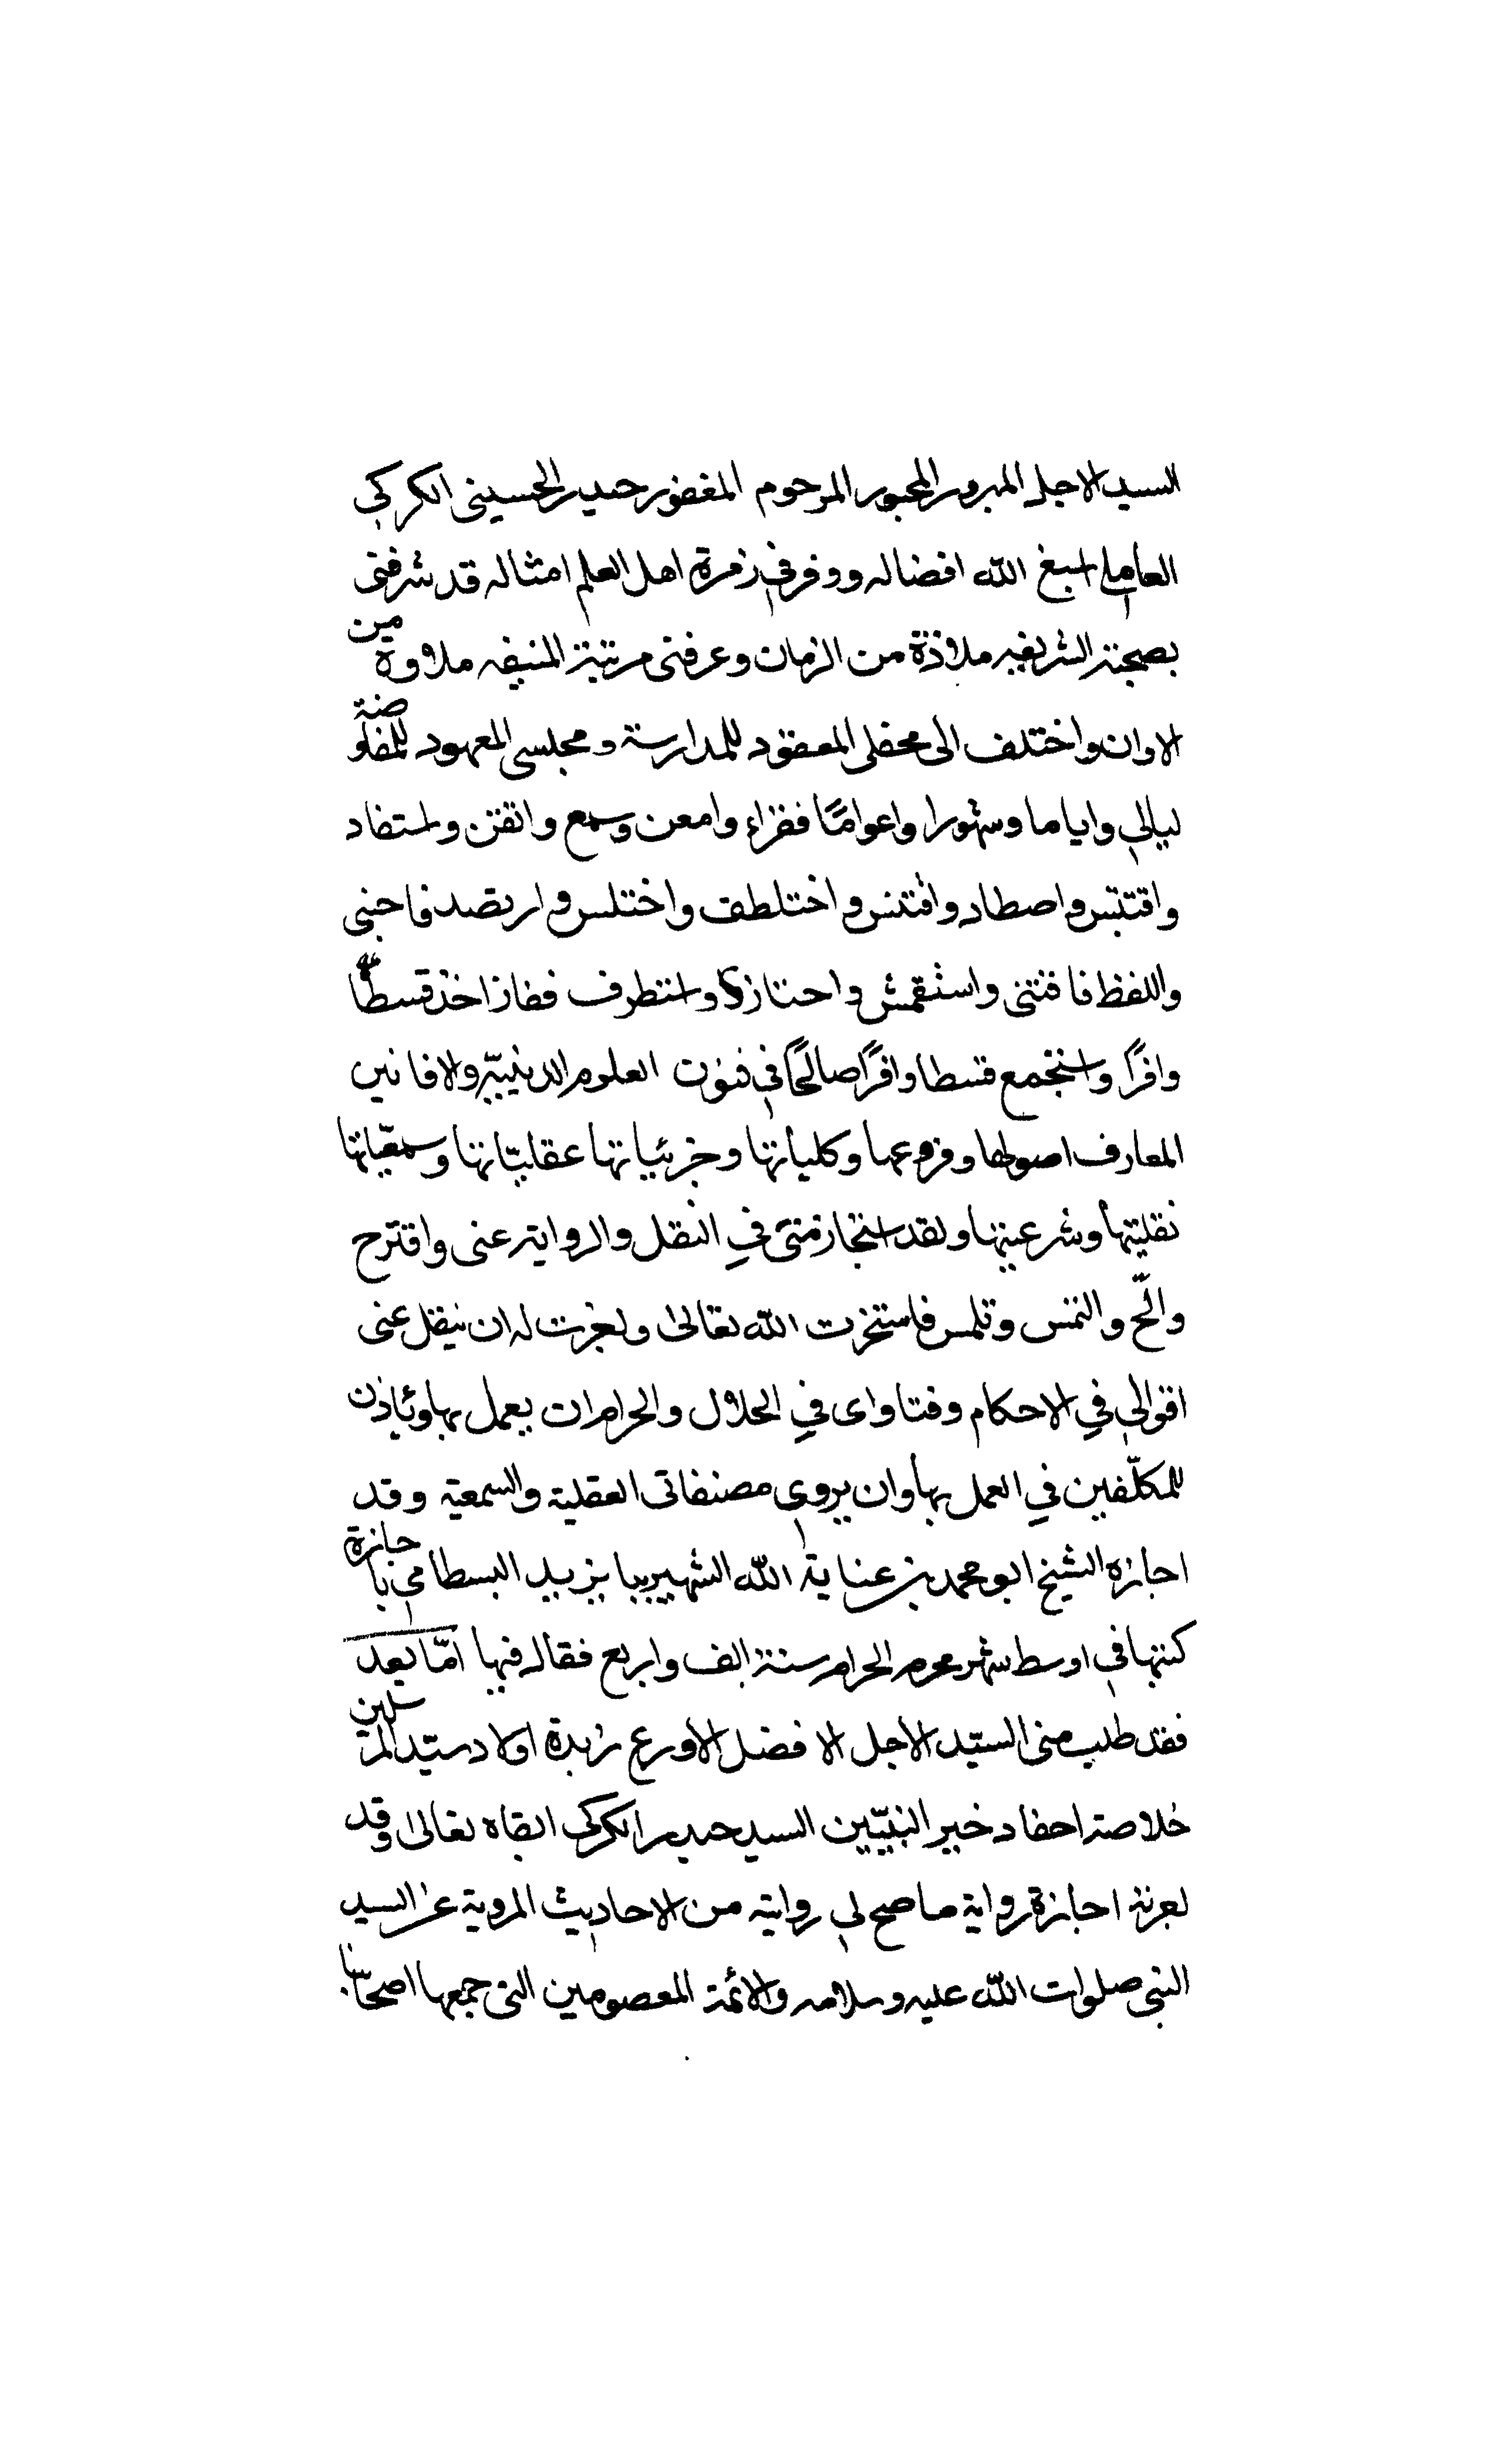 السيد الاجل المبرور المحبور المرحوم المغفور حيدر الحسيني الكركي
العاملي اسبغ الله افضاله ووفر في زمرة اهل العلم امثاله قد شرفني
بصحبته الشريفه ملاذة من الزمان وعرفني مرتبته المنيفه ملاوة من
الاوان واختلف الى محفلي المعقود للمدارسة ومجلسي المعهود للمفاوضة
ليالي واياما وشهورا واعوامًا فقراء وامعن وسمع واتقن واستفاد
واقتبس واصطاد واقتنس واختلطف واختلس وارتصد فاجني
واللفظ فاقتنى واستقمش واحتاز واستطرف ففاز اخذ قسطًا
وافرًا واستجمع قسطا وافرًا صالحًا في فنون العلوم الدينيّه والافانين
المعارف اصولها وفروعها وكلياتها وجزئياتها عقليّاتها وسمعيّاتها
نقليتها وشرعيتها ولقد استجاز منّي في النقل والرواية عني واقترح
والحّ والتمس وتلمس فاستخرت الله تعالى واجزت له ان ينقل عني
اقوالي في الاحكام وفتاواى في الحلال والحرام ان يعمل بها ويأذن
للمكلّفين في العمل بها وان يروي مصنفاتي العقلية والسمعية وقد
اجازه الشيخ ابو محمد بن عناية الله الشهير ببا يزيد البسطامي باجازة
كتبها في اوسط شهر محرم الحرام سنة الف واربع فقال فيها امّا بعد
فقد طلب مني السيّد الاجل الافضل الأورع زبدة اولاد سيّد المرسلين
خلاصة احفاد خير النبيّين السيد حيدر الكركي ابقاه تعالى وقد
اجازة رواية ما صح لي روايته من الاحاديث المروية عن السيد
النبي صلوات الله عليه وسلامه والائمة المعصومين التي جمعها اصحابنا